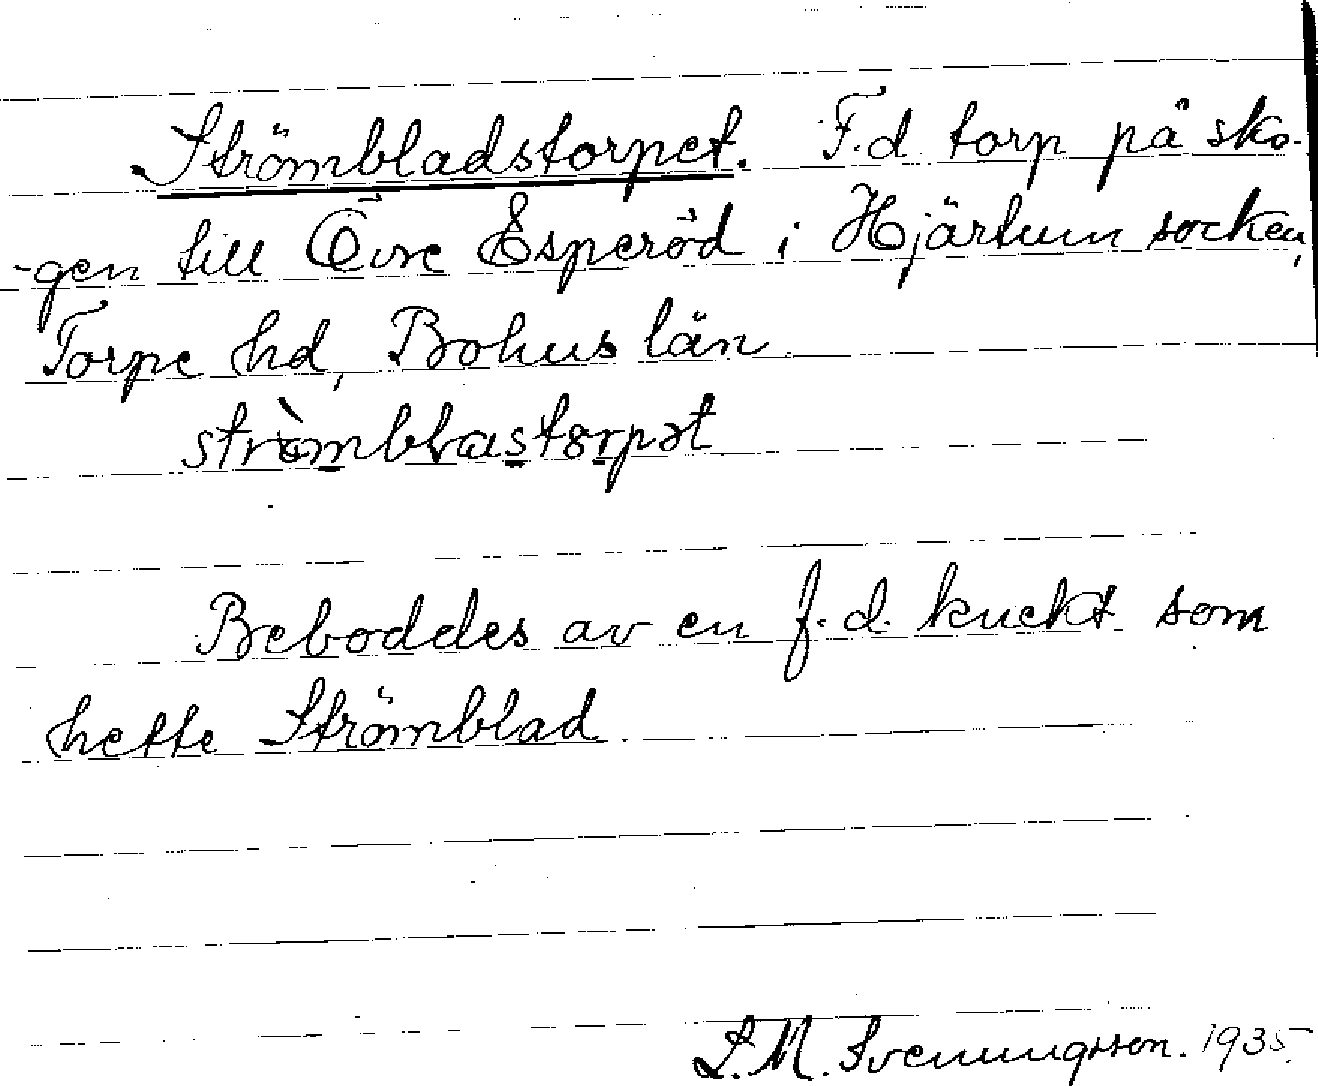 Strömbladstorpet. F.d torp på sko-
-gen till Övre Esperöd i Hjärtum socken,
Torpe hd, Bohus län
strömblastorpət
Beboddes av en f.d. knekt som
hette Strömblad
S.M. Svenungsson. 1935.